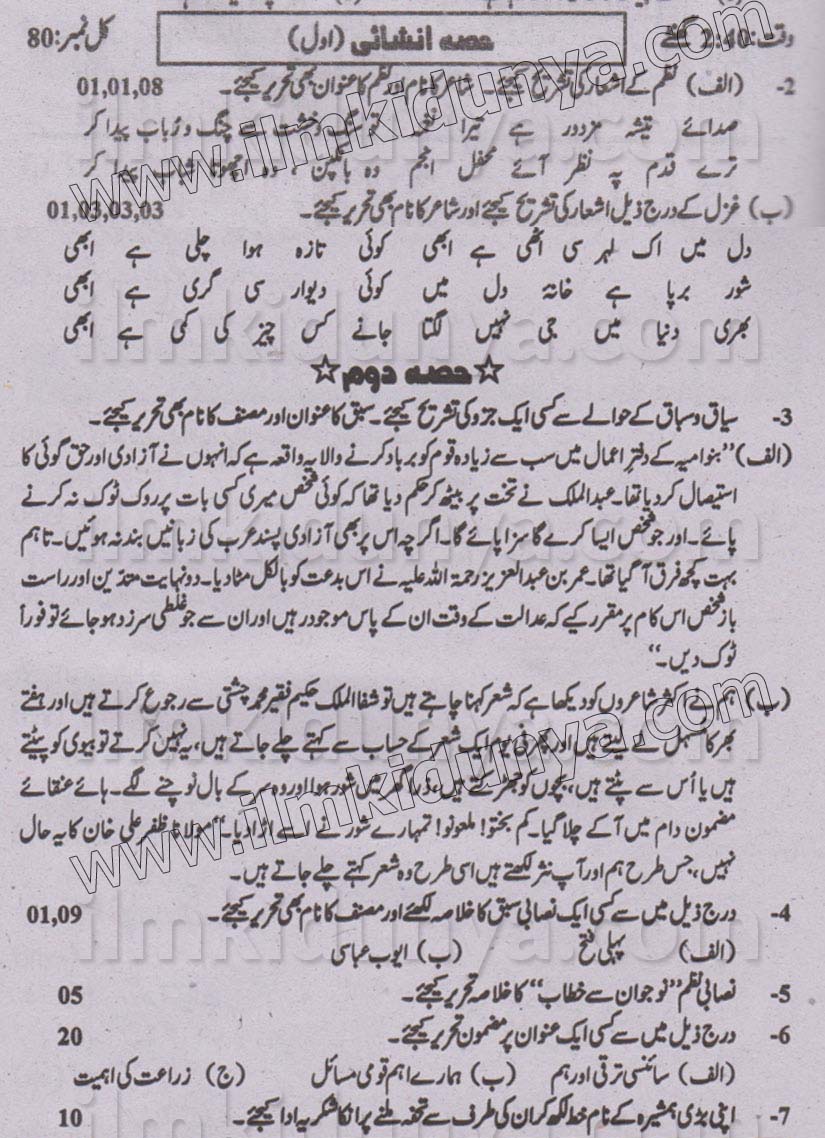 وقت: 2:40 گھنٹے حصہ انشائی (اول) کل نمبر: 80
2- (الف) نظم کے اشعار کی تشریح کیجئے۔ شاعر کا نام اور نظم کا عنوان بھی تحریر کیجئے۔ 01,01,08
صدائے تیشہ مزدور ہے تیرا نغمہ تو سنگ و خشت سے چنگ و رُباب پیدا کر
ترے قدم پہ نظر آئے محفل انجم وہ بانکپن، وہ اچھوتا شباب پیدا کر
(ب) غزل کے درج ذیل اشعار کی تشریح کیجئے اور شاعر کا نام بھی تحریر کیجئے۔ 01,03,03,03
دل میں اک لہر سی اٹھی ہے ابھی کوئی تازہ ہوا چلی ہے ابھی
شور برپا ہے خانۂ دل میں کوئی دیوار سی گری ہے ابھی
بھری دنیا میں جی نہیں لگتا جانے کس چیز کی کمی ہے ابھی
☆ حصہ دوم ☆
3- سیاق و سباق کے حوالے سے کسی ایک جزو کی تشریح کیجئے۔ سبق کا عنوان اور مصنف کا نام بھی تحریر کیجئے۔
(الف) ”بنو امیہ کے دفترِ اعمال میں سب سے زیادہ قوم کو برباد کرنے والا یہ واقعہ ہے کہ انہوں نے آزادی اور حق گوئی کا
استیصال کر دیا تھا۔ عبدالملک نے تخت پر بیٹھ کر حکم دیا تھا کہ کوئی شخص میری کسی بات پر روک ٹوک نہ کرنے
پائے۔ اور جو شخص ایسا کرے گا سزا پائے گا۔ اگرچہ اس پر بھی آزادی پسند عرب کی زبانیں بند نہ ہوئیں۔ تاہم
بہت کچھ فرق آ گیا تھا۔ عمر بن عبدالعزیز رحمۃ اللہ علیہ نے اس بدعت کو بالکل مٹا دیا۔ دو نہایت متدین اور راست
باز شخص اس کام پر مقرر کیے کہ عدالت کے وقت ان کے پاس موجود رہیں اور ان سے جو غلطی سرزد ہو جائے تو فوراً
ٹوک دیں۔“
(ب) ہم نے اکثر شاعروں کو دیکھا ہے کہ شعر کہنا چاہتے ہیں تو شفا الملک حکیم فقیر محمد چشتی سے رجوع کرتے ہیں اور ہفتے
بھر کا مسہل لے لیتے ہیں اور پھر فی یوم ایک شعر کے حساب سے کہتے چلے جاتے ہیں، یہ نہیں کرتے تو بیوی کو پیٹتے
ہیں یا اُس سے پٹتے ہیں، بچوں کو جھڑکتے ہیں، ذرا گھر میں شور ہوا اور وہ سر کے بال نوچنے لگے۔ ہائے عنقائے
مضمون دام میں آ کے چلا گیا۔ کم بختو! ملعونو! تمہارے شور نے اسے اڑا دیا۔“ مولانا ظفر علی خان کا یہ حال
نہیں، جس طرح ہم اور آپ نثر لکھتے ہیں اسی طرح وہ شعر کہتے چلے جاتے ہیں۔
4- درج ذیل میں سے کسی ایک نصابی سبق کا خلاصہ لکھئے اور مصنف کا نام بھی تحریر کیجئے۔ 01,09
(الف) پہلی فتح (ب) ایوب عباسی
5- نصابی نظم ”نوجوان سے خطاب“ کا خلاصہ تحریر کیجئے۔ 05
6- درج ذیل میں سے کسی ایک عنوان پر مضمون تحریر کیجئے۔ 20
(الف) سائنسی ترقی اور ہم (ب) ہمارے اہم قومی مسائل (ج) زراعت کی اہمیت
7- اپنی بڑی ہمشیرہ کے نام خط لکھ کر ان کی طرف سے تحفہ ملنے پر انکا شکریہ ادا کیجئے۔ 10
www.ilmkidunya.com
ilmkidunya.com
ilmkidunya.com
ilmkidunya.com
www.ilmkidunya.com
ilmkidunya.com
ilmkidunya.com